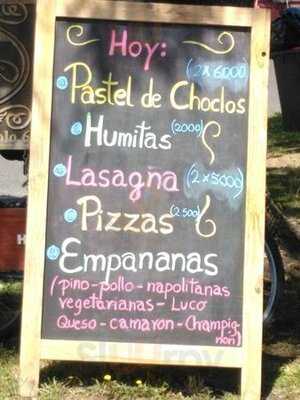 Hoy:
Pastel de Choclos (2x6000)
Humitas (2000)
Lasagña (2x5000)
Pizzas (2.500)
Empananas
(pino-pollo-napolitanas
vegetarianas-Luco
Queso-camaron-Champig
non)